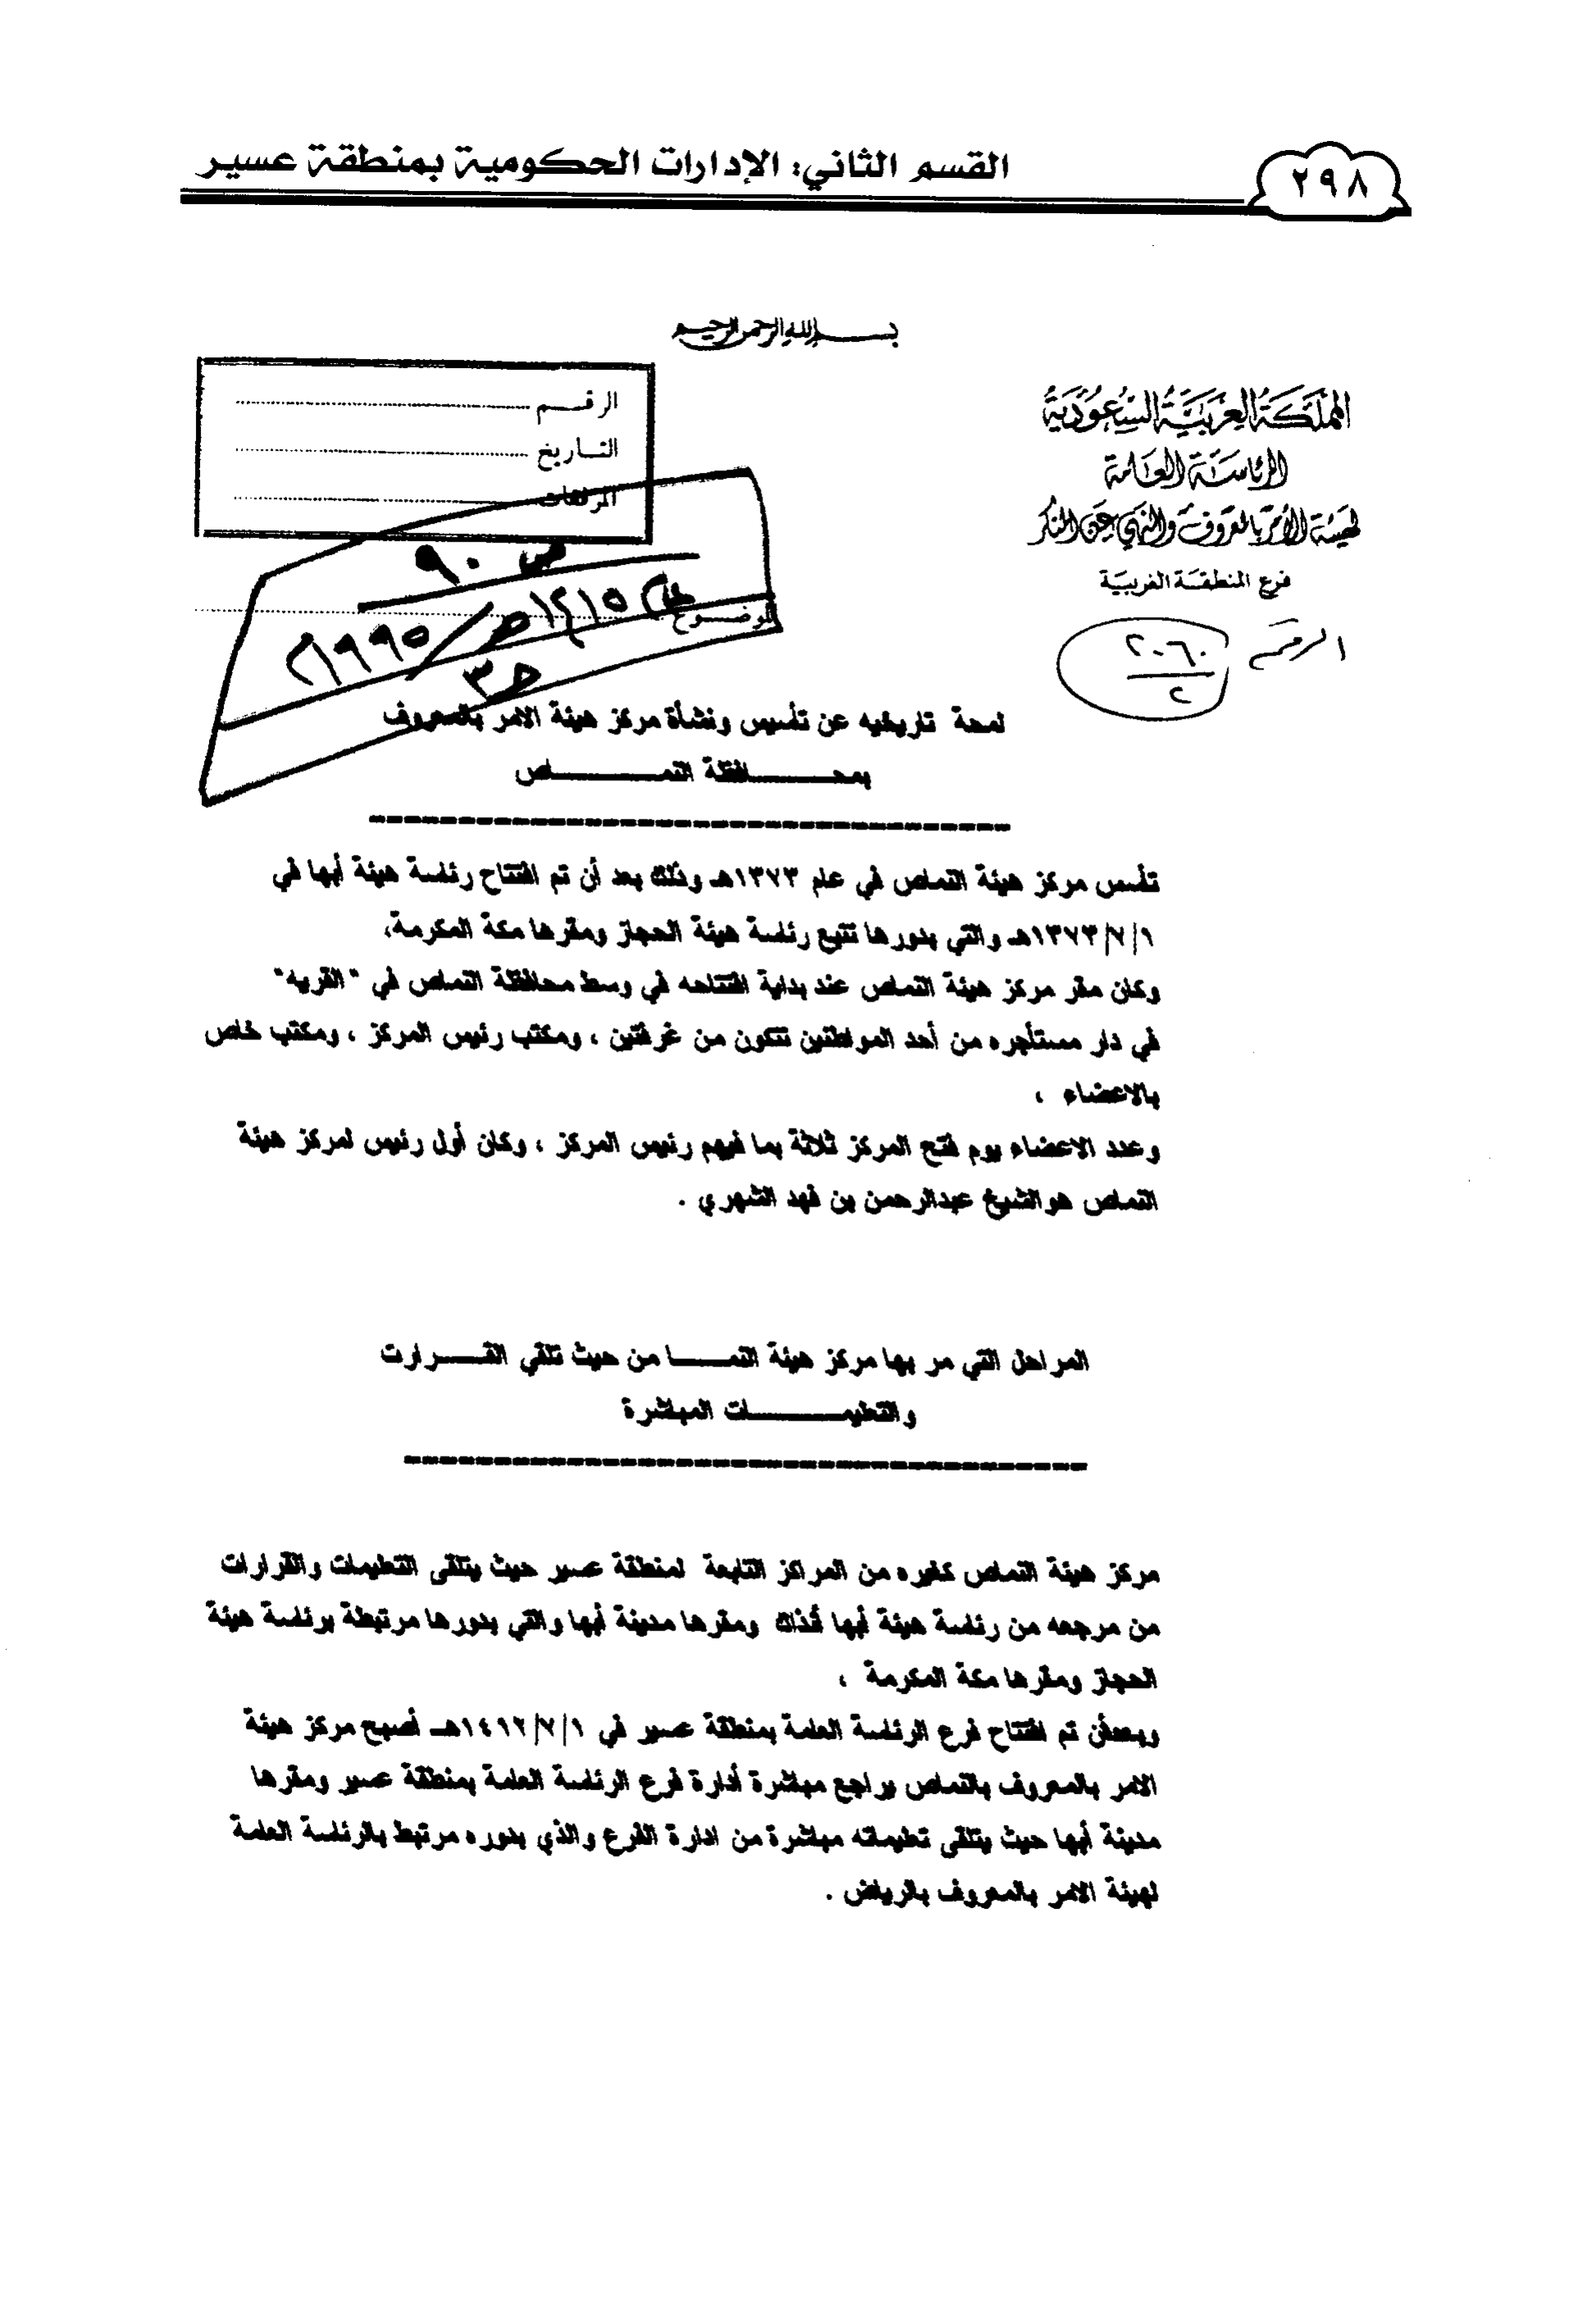 القسم الثاني: الإدارات الحكومية بمنطقة عسير
٢٩٨
بسم الله الرحمن الرحيم
المملكة العربية السعودية
الرئاسة العامة
لهيئة الأمر بالمعروف والنهي عن المنكر
فرع المنطقة الغربية
الرقم
٢٠٦٠
٢
الرقم
التاريخ
المرفقات
الموضوع
ص ٩٠
عام ١٤١٥هـ/١٩٩٥م
ح٣
لمحة تاريخيه عن تأسيس ونشأة مركز هيئة الامر بالمعروف
بمحافظة النماص
تأسس مركز هيئة النماص في عام ١٣٧٣هـ وذلك بعد أن تم افتتاح رئاسة هيئة أبها في
١/٧/١٣٧٣هـ والتي بدورها تتبع رئاسة هيئة الحجاز ومقرها مكة المكرمة،
وكان مقر مركز هيئة النماص عند بداية افتتاحه في وسط محافظة النماص في "القريه"
في دار مستأجره من أحد المواطنين تتكون من غرفتين ، ومكتب رئيس المركز ، ومكتب خاص
بالاعضاء ،
وعدد الاعضاء يوم فتح المركز ثلاثة بما فيهم رئيس المركز ، وكان أول رئيس لمركز هيئة
النماص هوالشيخ عبدالرحمن بن فهد الشهري .
المراحل التي مر بها مركز هيئة النمــا من حيث تلقي القــرارت
والتعليمــات المباشرة
مركز هيئة النماص كغيره من المراكز التابعة لمنطقة عسير حيث يتلقى التعليمات والقرارات
من مرجعه من رئاسة هيئة أبها أنذاك ومقرها مدينة أبها والتي بدورها مرتبطة برئاسة هيئة
الحجاز ومقرها مكة المكرمة ،
وبعدأن تم افتتاح فرع الرئاسة العامة بمنطقة عسير في ١/٧/١٤١٢هـ أصبح مركز هيئة
الامر بالمعروف بالنماص يراجع مباشرة أدارة فرع الرئاسة العامة بمنطقة عسير ومقرها
مدينة أبها حيث يتلقى تعليماته مباشرة من ادارة الفرع والذي بدوره مرتبط بالرئاسة العامة
لهيئة الامر بالمعروف بالرياض .